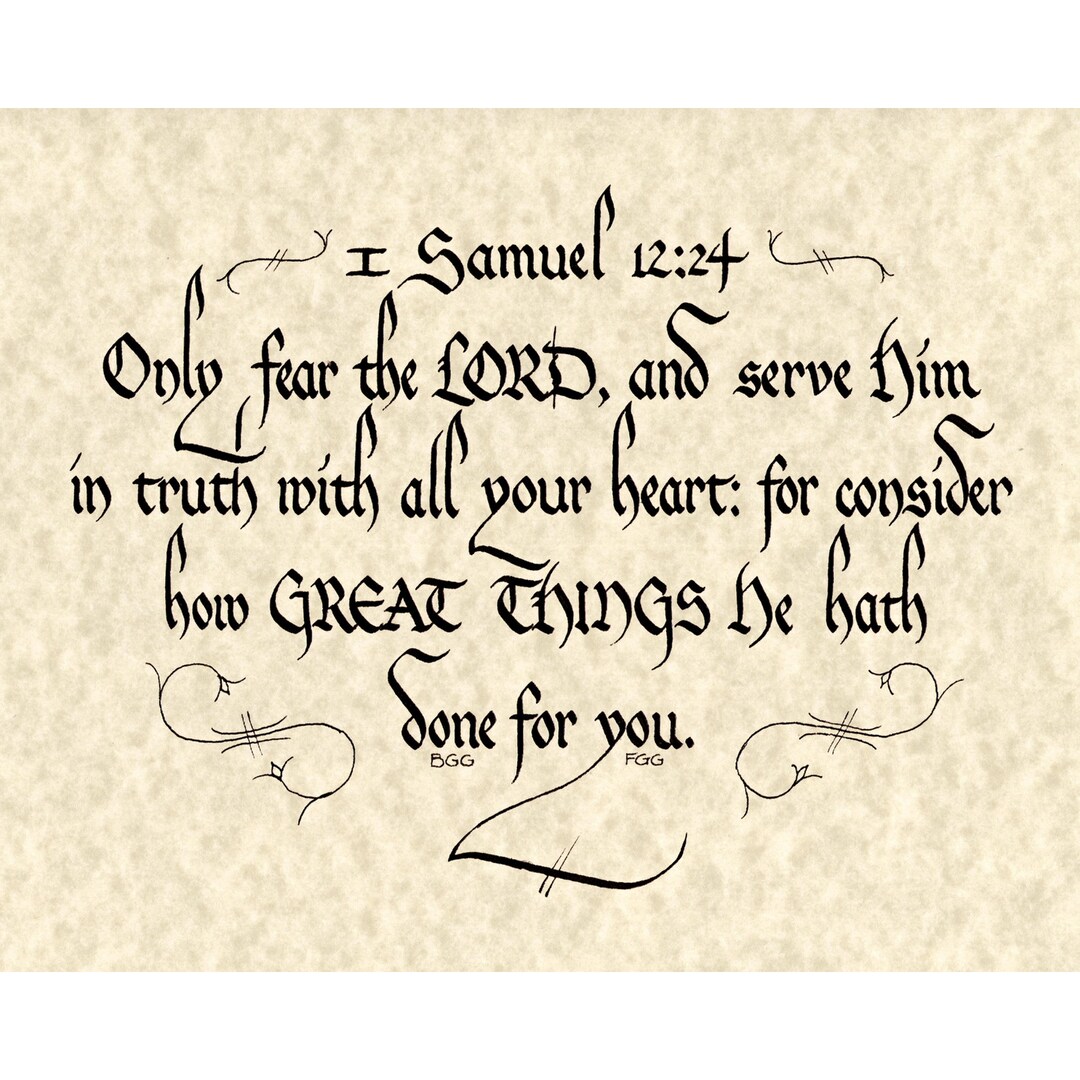 I Samuel 12:24
Only fear the LORD, and serve Him
in truth with all your heart: for consider
how GREAT THINGS He hath
done for you.
BGG FGG